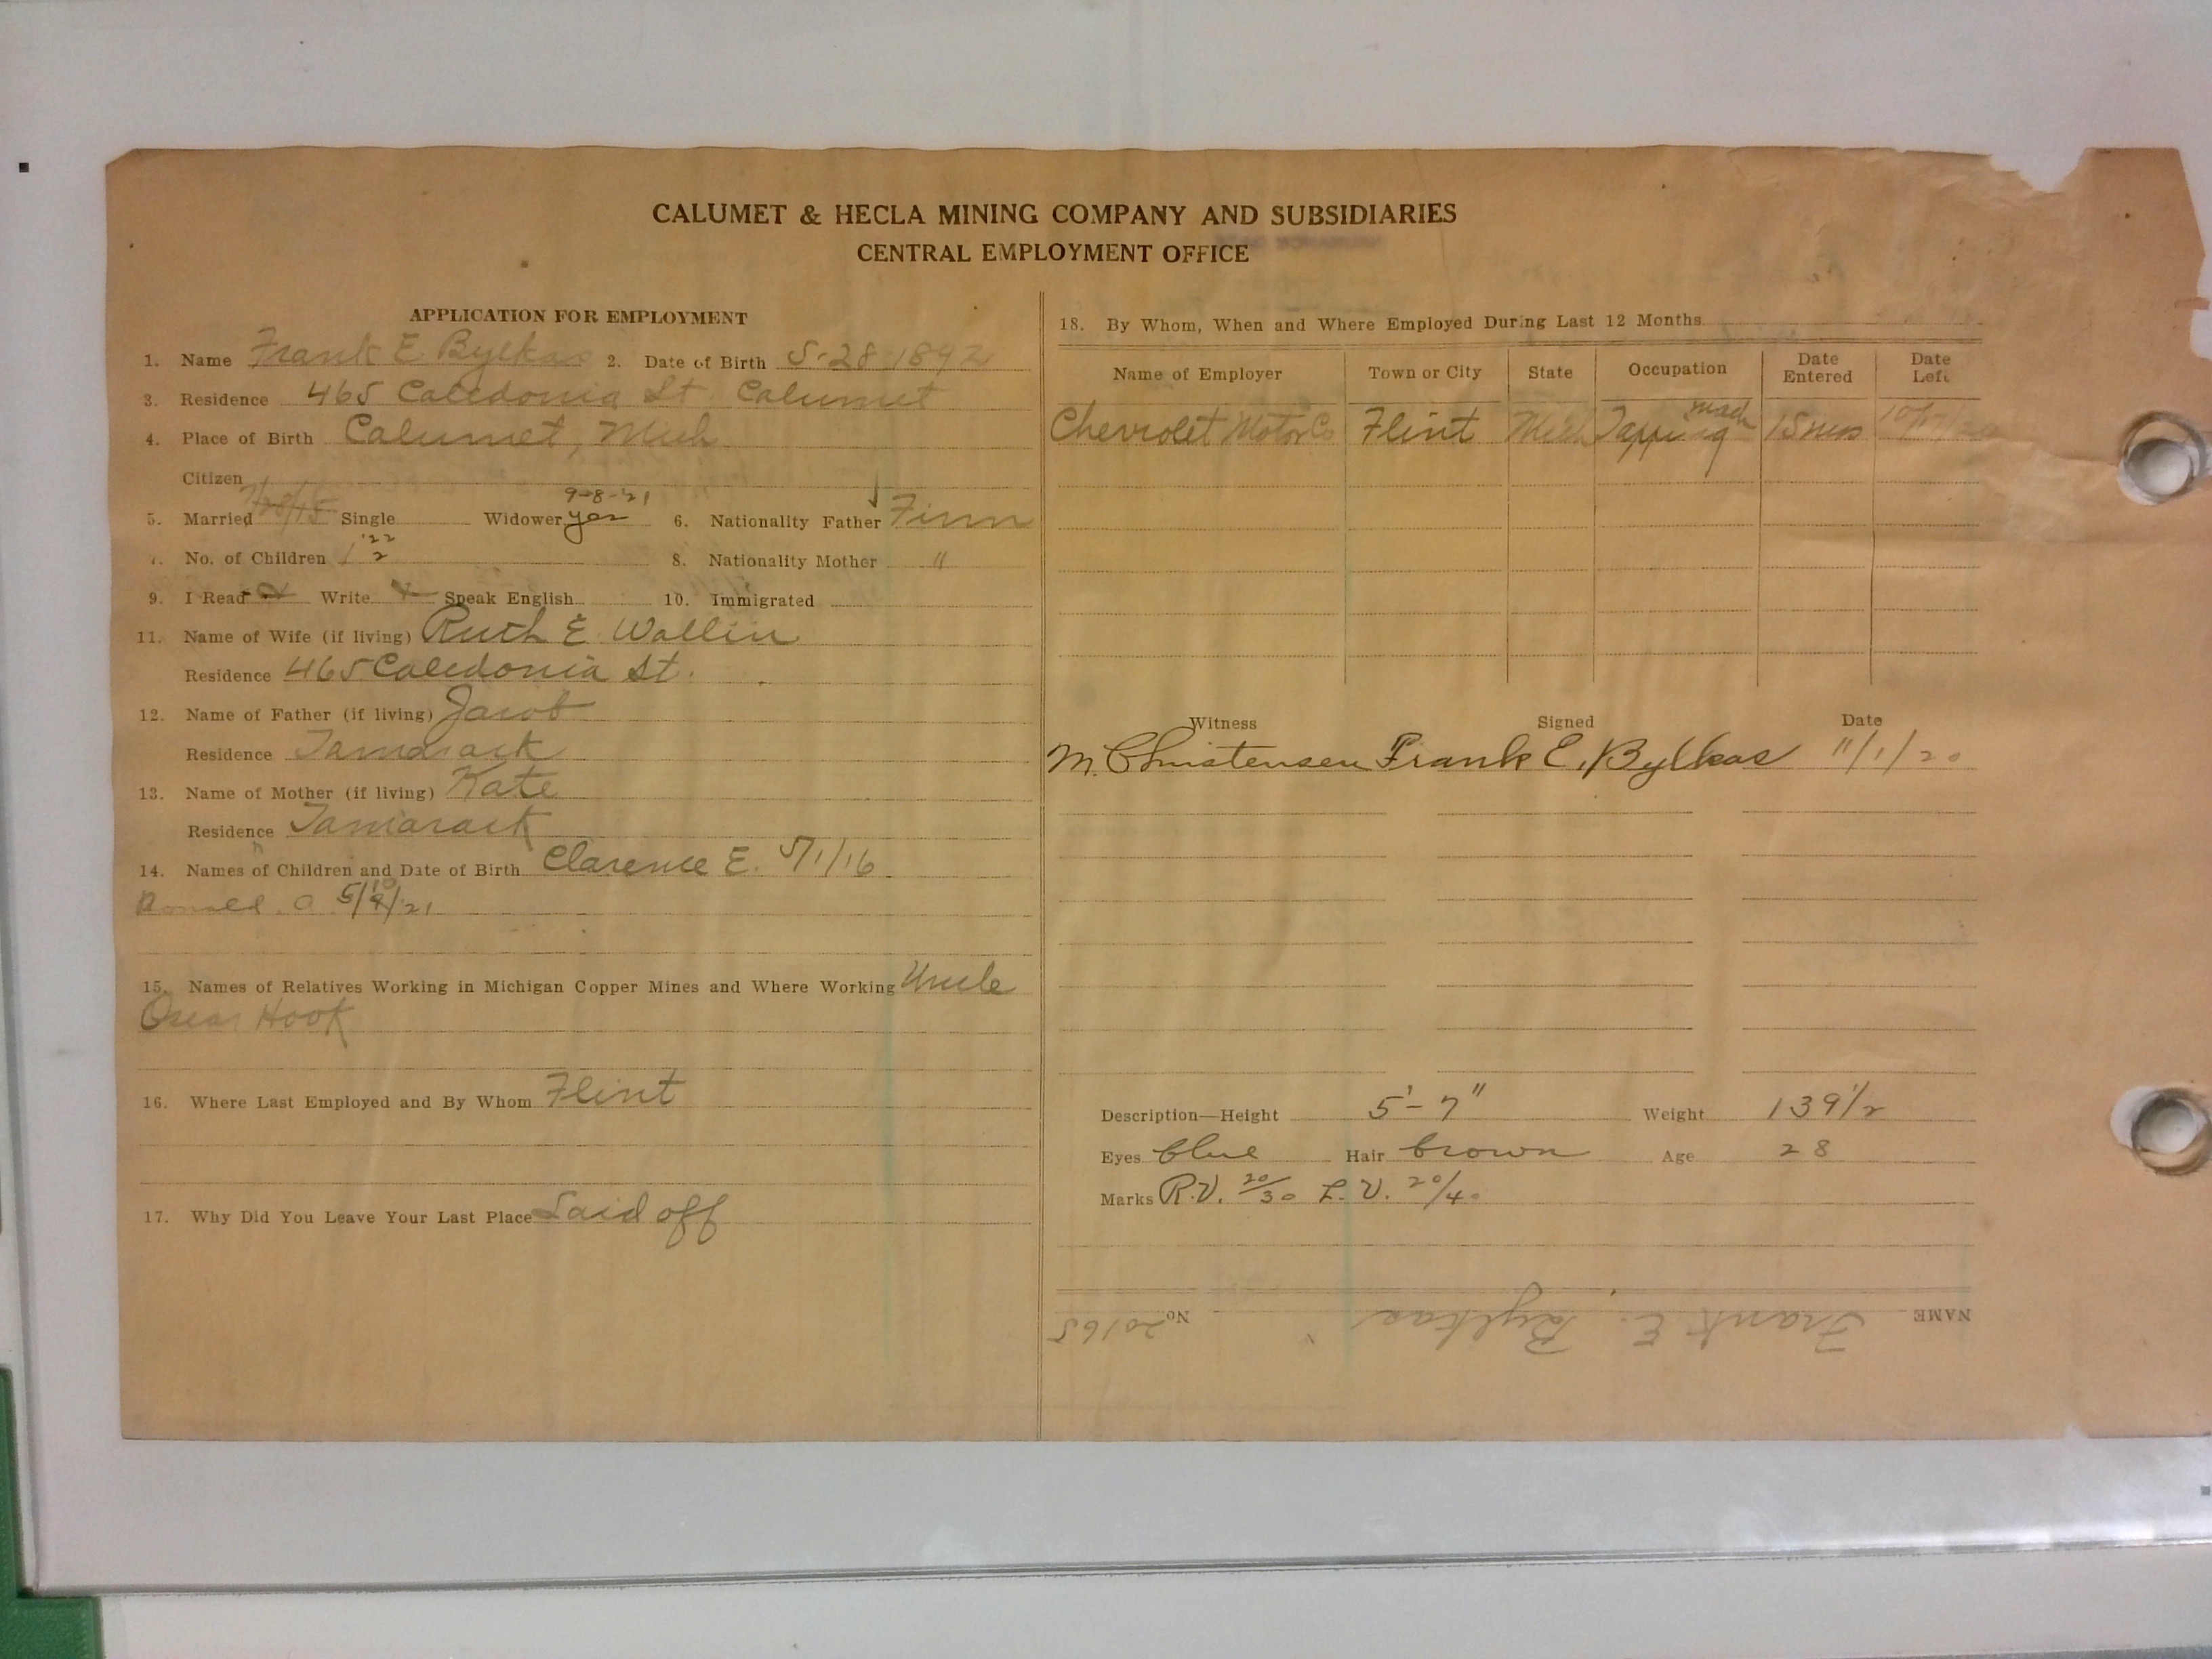 CALUMET & HECLA MINING COMPANY AND SUBSIDIARIES
CENTRAL EMPLOYMENT OFFICE
APPLICATION FOR EMPLOYMENT
1. Name Frank E Bylkas 2. Date of Birth 5-28-1892
3. Residence 465 Caledonia St. Calumet
4. Place of Birth Calumet, Mich
Citizen
9-8-'21
5. Married Single Widower yes 6. Nationality Father Finn
'22
7. No. of Children 1 2 8. Nationality Mother "
9. I Read x Write x Speak English 10. Immigrated
11. Name of Wife (if living) Ruth E. Wallin
Residence 465 Caledonia St.
12. Name of Father (if living) Jacob
Residence Tamarack
13. Name of Mother (if living) Kate
Residence Tamarack
14. Names of Children and Date of Birth Clarence E. 5/1/16
Donald. A 5/ /21
15. Names of Relatives Working in Michigan Copper Mines and Where Working Uncle
Oscar Hook
16. Where Last Employed and By Whom Flint
17. Why Did You Leave Your Last Place Laid off
18. By Whom, When and Where Employed During Last 12 Months
Name of Employer Town or City State Occupation Date Entered Date Left
Chevrolet Motor Co Flint Mich Tapping mach 15 mos
Witness Signed Date
M. Christensen Frank E. Bylkas 11/1/20
Description—Height 5'-7" Weight 139 1/2
Eyes blue Hair brown Age 28
Marks R.V. 20/30 L.V. 20/40
NAME Frank E. Bylkas No 20165